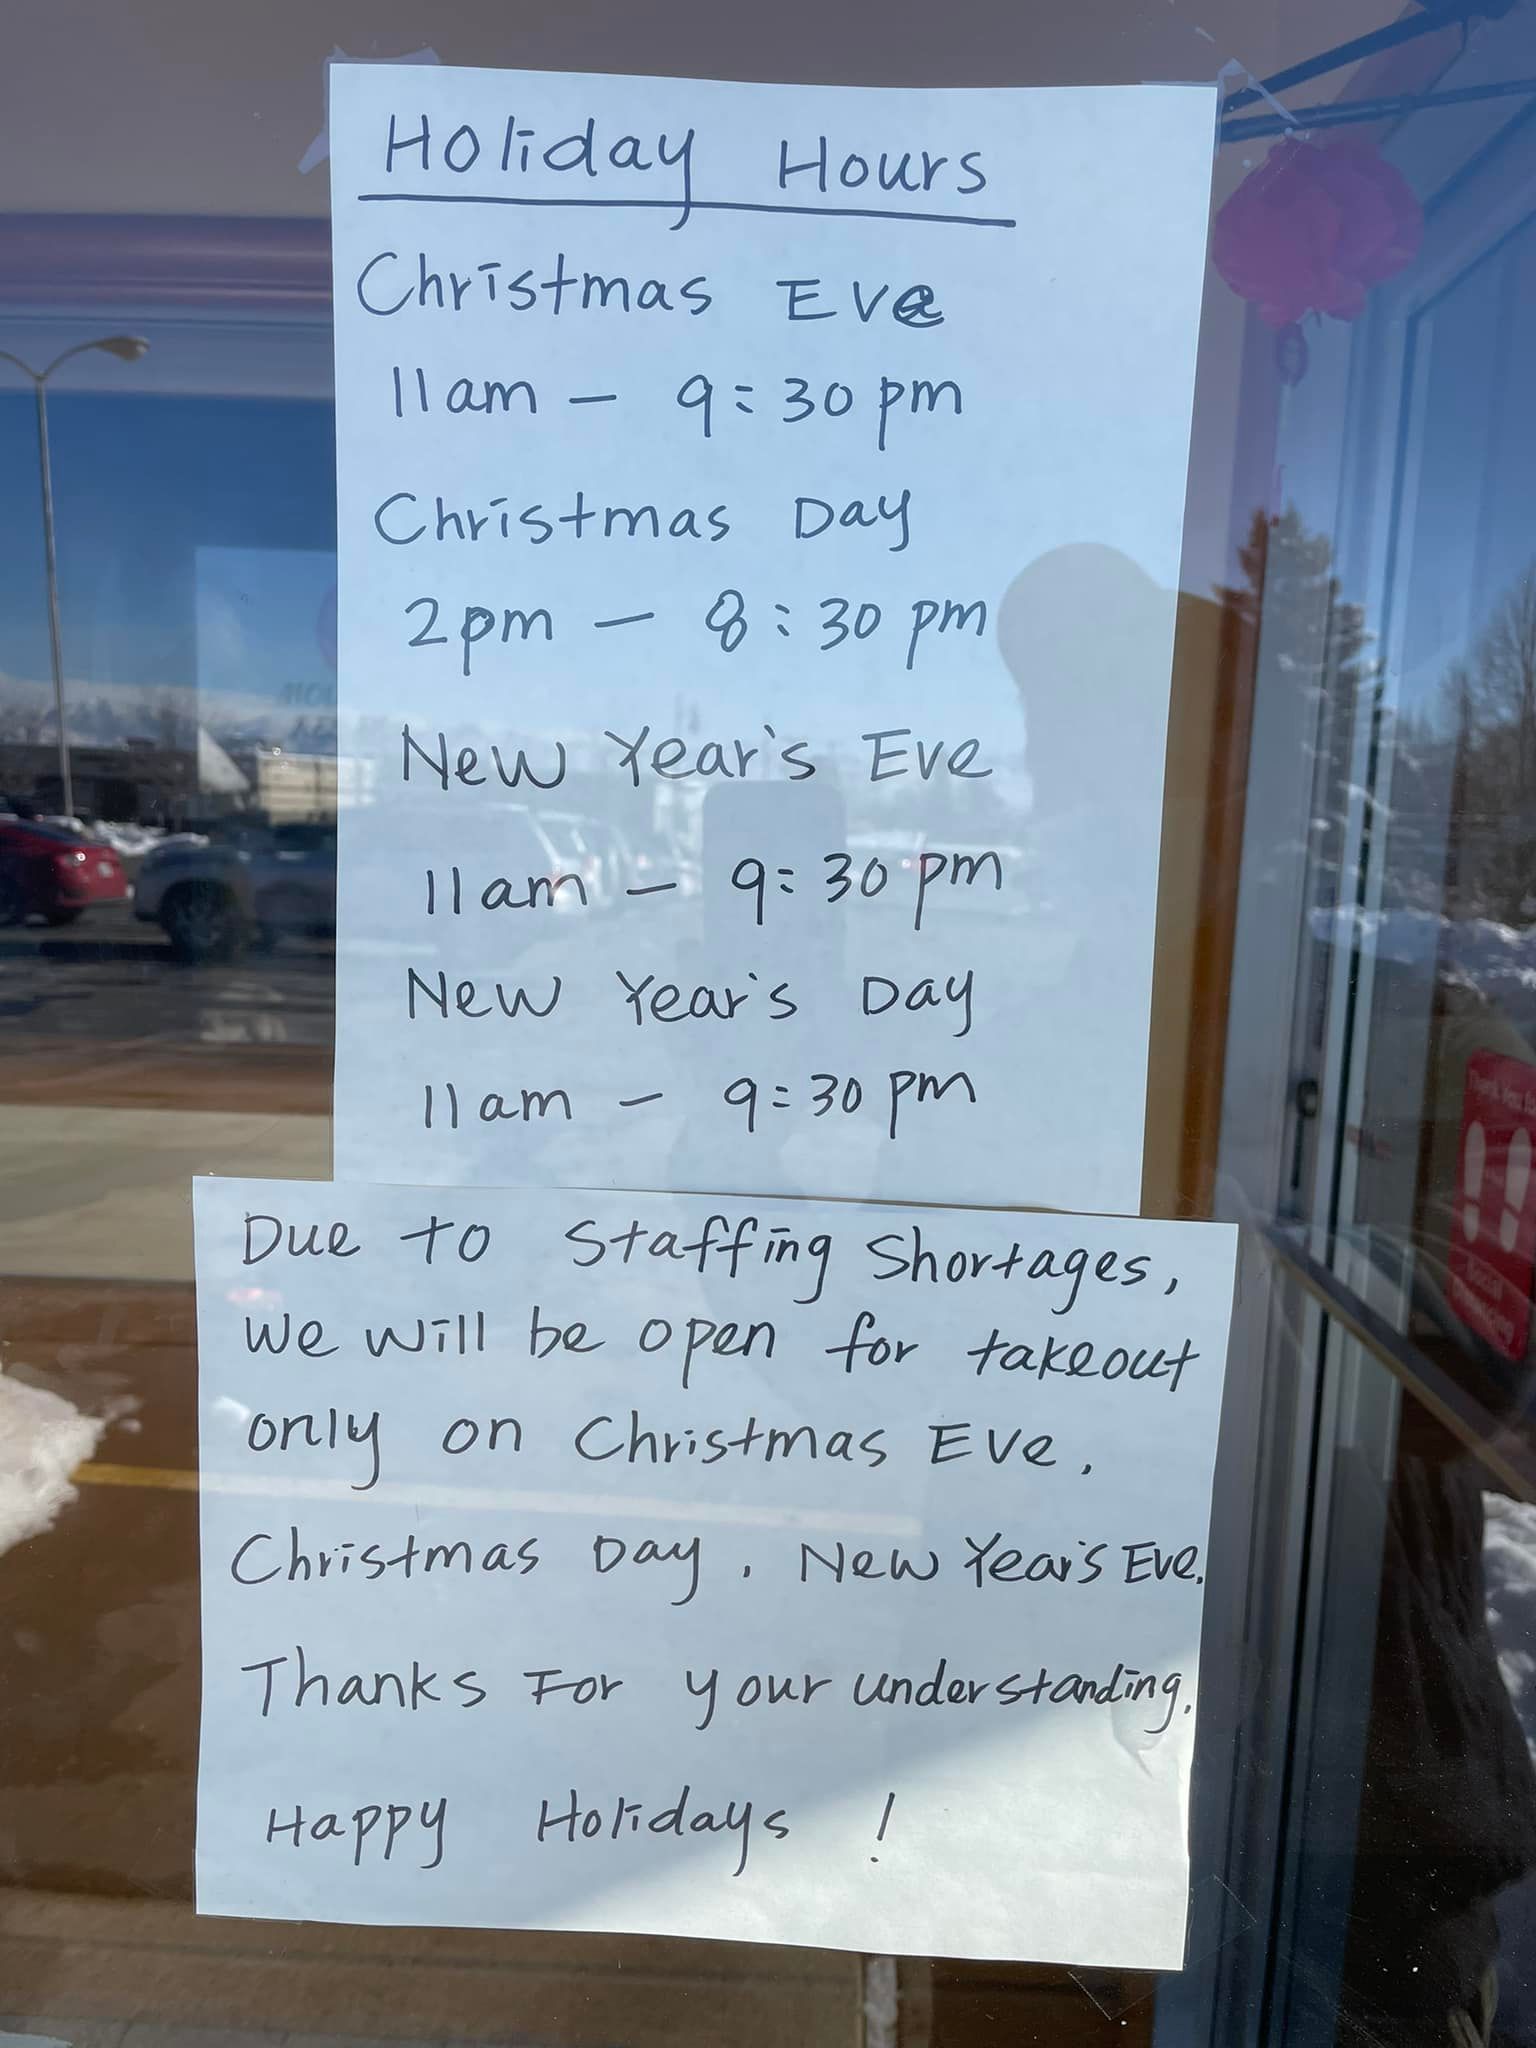 Holiday Hours
Christmas Eve
11am - 9:30pm
Christmas Day
2pm - 8:30pm
New Year's Eve
11am - 9:30pm
New Year's Day
11am - 9:30pm
Due to Staffing Shortages,
we will be open for takeout
only on Christmas Eve,
Christmas Day, New Year's Eve.
Thanks For your understanding.
Happy Holidays !
Thank You
Social
Distancing